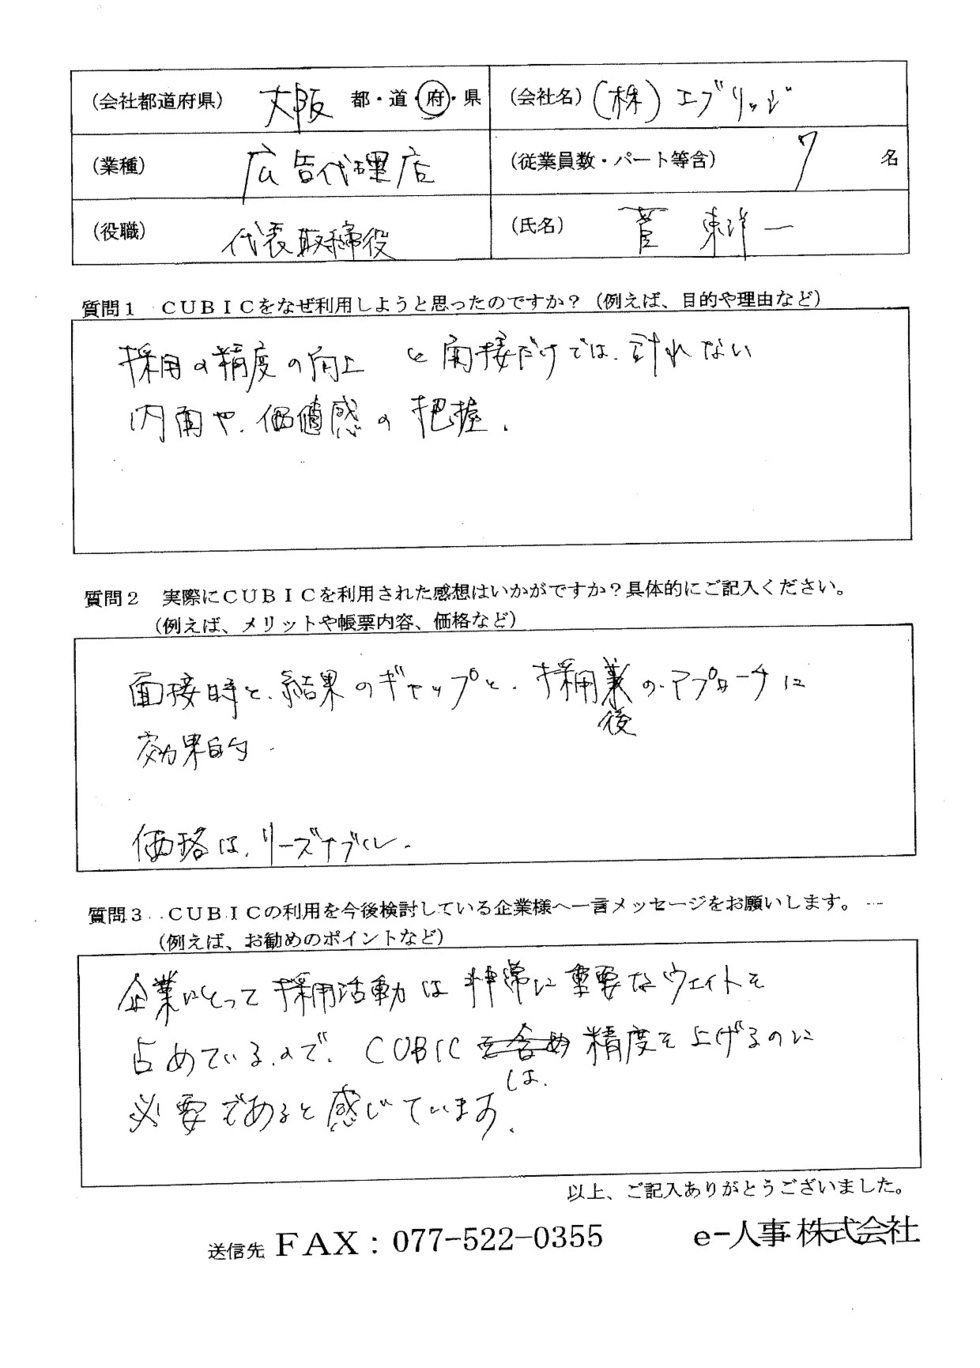 (会社都道府県) 大阪 都・道・府・県 (会社名) (株) エブリッジ
(業種) 広告代理店 (従業員数・パート等含) 7 名
(役職) 代表取締役 (氏名) 菅 東洋一
質問1 CUBICをなぜ利用しようと思ったのですか？（例えば、目的や理由など）
採用の精度の向上 と面接だけでは、計れない
内面や、価値感の把握。
質問2 実際にCUBICを利用された感想はいかがですか？具体的にご記入ください。
（例えば、メリットや帳票内容、価格など）
面接時と、結果のギャップと、採用後のアプローチに
効果的。
価格は、リーズナブル。
質問3 CUBICの利用を今後検討している企業様へ一言メッセージをお願いします。
（例えば、お勧めのポイントなど）
企業にとって採用活動は非常に重要なウェイトを
占めているので、CUBICは、精度を上げるのに
必要であると感じています。
以上、ご記入ありがとうございました。
送信先 FAX：077-522-0355 e-人事株式会社